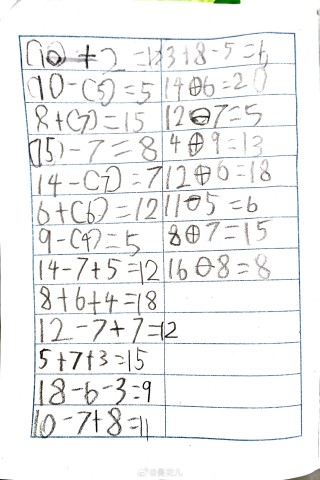 (10)+2=12
10-(5)=5
8+(7)=15
(15)-7=8
14-(7)=7
6+(6)=12
9-(4)=5
14-7+5=12
8+6+4=18
12-7+7=12
5+7+3=15
18-6-3=9
10-7+8=11
3+8-5=6
14⊕6=20
12⊖7=5
4⊕9=13
12⊕6=18
11⊖5=6
8⊕7=15
16⊖8=8